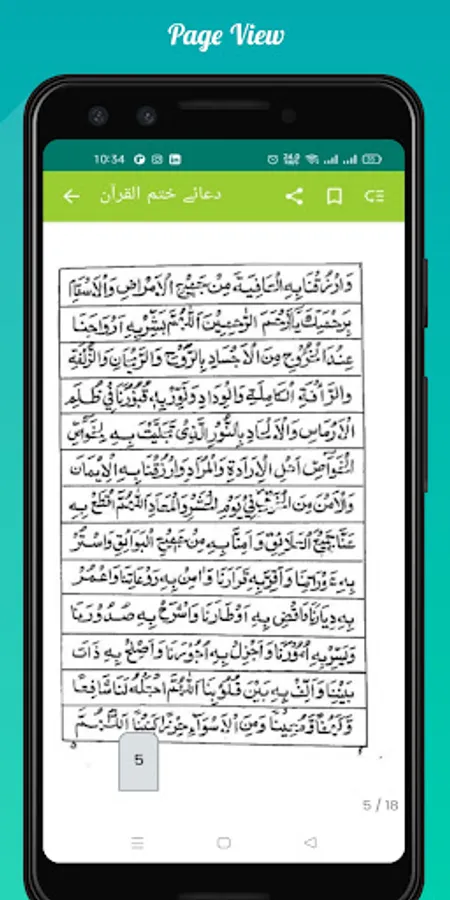 Page View
10:34
دعائے ختم القرآن
وَارْزُقْنَا بِهِ الْعَافِيَةَ مِنْ جَمِيْعِ الْاَمْرَاضِ وَالْاَسْقَامِ
بِرَحْمَتِكَ يَا اَرْحَمَ الرّٰحِمِيْنَ اَللّٰهُمَّ بَشِّرْ بِهِ اَرْوَاحَنَا
عِنْدَ الْخُرُوْجِ مِنَ الْاَجْسَادِ بِالرَّوْحِ وَالرَّيْحَانِ وَالزُّلْفَةِ
وَالرَّاْفَةِ الْكَامِلَةِ وَالْوِدَادِ وَنَوِّرْ بِهِ قُبُوْرَنَا فِيْ ظُلَمِ
الْاَرْمَاسِ وَالْاَلْحَادِ بِالنُّوْرِ الَّذِيْ تَجَلَّيْتَ بِهِ لِخَوَاصِّ
الْخَوَاصِّ اَهْلِ الْاِرَادَةِ وَالْمُرَادِ وَارْزُقْنَا بِهِ الْاِيْمَانَ
وَالْاَمْنَ مِنَ فِيْ يَوْمِ الْحَشْرِ وَالْمَعَادِ اَللّٰهُمَّ اقْطَعْ بِهِ
عَنَّا جَمِيْعَ الْعَلَائِقِ وَاٰمِنَّا بِهِ مِنْ جَمِيْعِ الْبَوَائِقِ وَاسْتُرْ
بِهِ عَوْرَاتِنَا وَاَقِرَّ بِهِ قَرَارَنَا وَاٰمِنْ بِهِ رَوْعَاتِنَا وَاعْمُرْ
بِهِ دِيَارَنَا وَاقْضِ بِهِ اَوْطَارَنَا وَاشْرَحْ بِهِ صُدُوْرَنَا
وَيَسِّرْ بِهِ اُمُوْرَنَا وَاَجْزِلْ بِهِ اُجُوْرَنَا وَاَصْلِحْ بِهِ ذَاتَ
بَيْنِنَا وَاَلِّفْ بِهِ بَيْنَ قُلُوْبِنَا اَللّٰهُمَّ اجْعَلْهُ لَنَا شَافِعًا
وَمِنَ الْاَسْوَاءِ حِرْزًا اَللّٰهُمَّ
5
5 / 18